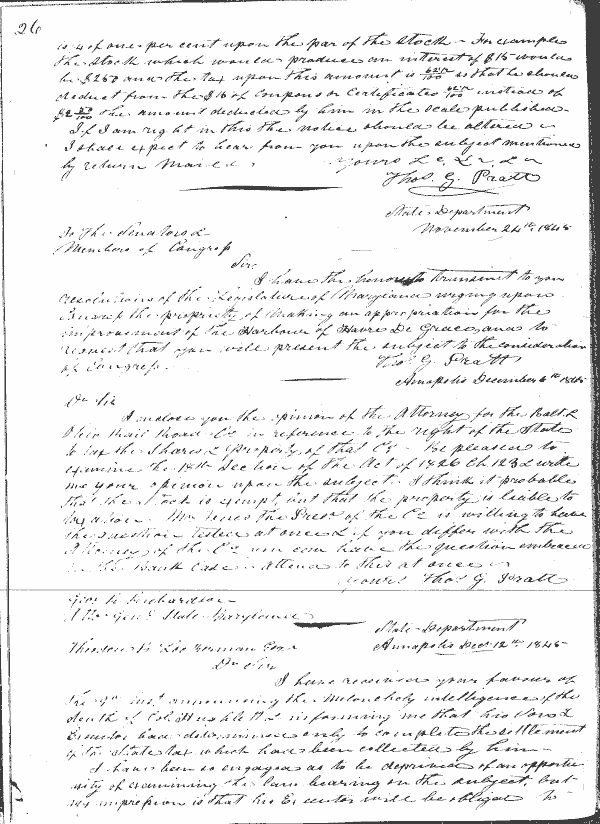 26
is 4 of one per cent upon the par of the stock - For example
the stock which would produce an interest of $15 would
be $250 and the tax upon this amount is 62½/100 so that he should
deduct from the $15 of Coupons or Certificates 62½/100 instead of
$2 50/100 the amount deducted by him in the scale published
If I am right in this the notice should be altered -
I shall expect to hear from you upon the subject mentioned
by return Mail
Yours &c &c &c
Thos. G. Pratt
State Department
November 24th 1845
To The Senators &
Members of Congress
Sir,
I have the honor to transmit to you
resolutions of the Legislature of Maryland urging upon
Congress the propriety of making an appropriation for the
improvement of the Harbour of Havre De Grace, and to
request that you will present the subject to the consideration
of Congress.
Tho. G. Pratt
Annapolis December 6th 1845
Dr Sir
I enclose you the opinion of the Attorney for the Balt. &
Ohio Rail Road Co in reference to the right of the State
to tax the Shares & property of that Co. Be pleased to
examine the 18th Section of the Act of 1826 Ch 123 & write
me your opinion upon the subject. I think it probable
that the Stock is exempt, but that the property is liable to
taxation. the Prest of the Co is willing to have
the question tested at once & if you differ with the
Attorney of the Co you can have the question embraced
in the Bank Case - Attend to this at once -
yours Thos G. Pratt
Geo. R. Richardson
Att. Genl. State Maryland
State Department
Annapolis Decr 12th 1845
Theodore R. Lockerman Esqr
Dr Sir
I have received your favour of
the 9th inst. announcing the melancholy intelligence of the
death of Col. Hughlett & informing me that his Sons &
Executor had determined only to complete the settlement
of the State tax which had been collected by him -
I have been so engaged as to be deprived of an opportu-
nity of examining the Laws bearing on the subject, but
my impression is that his Executor will be obliged to